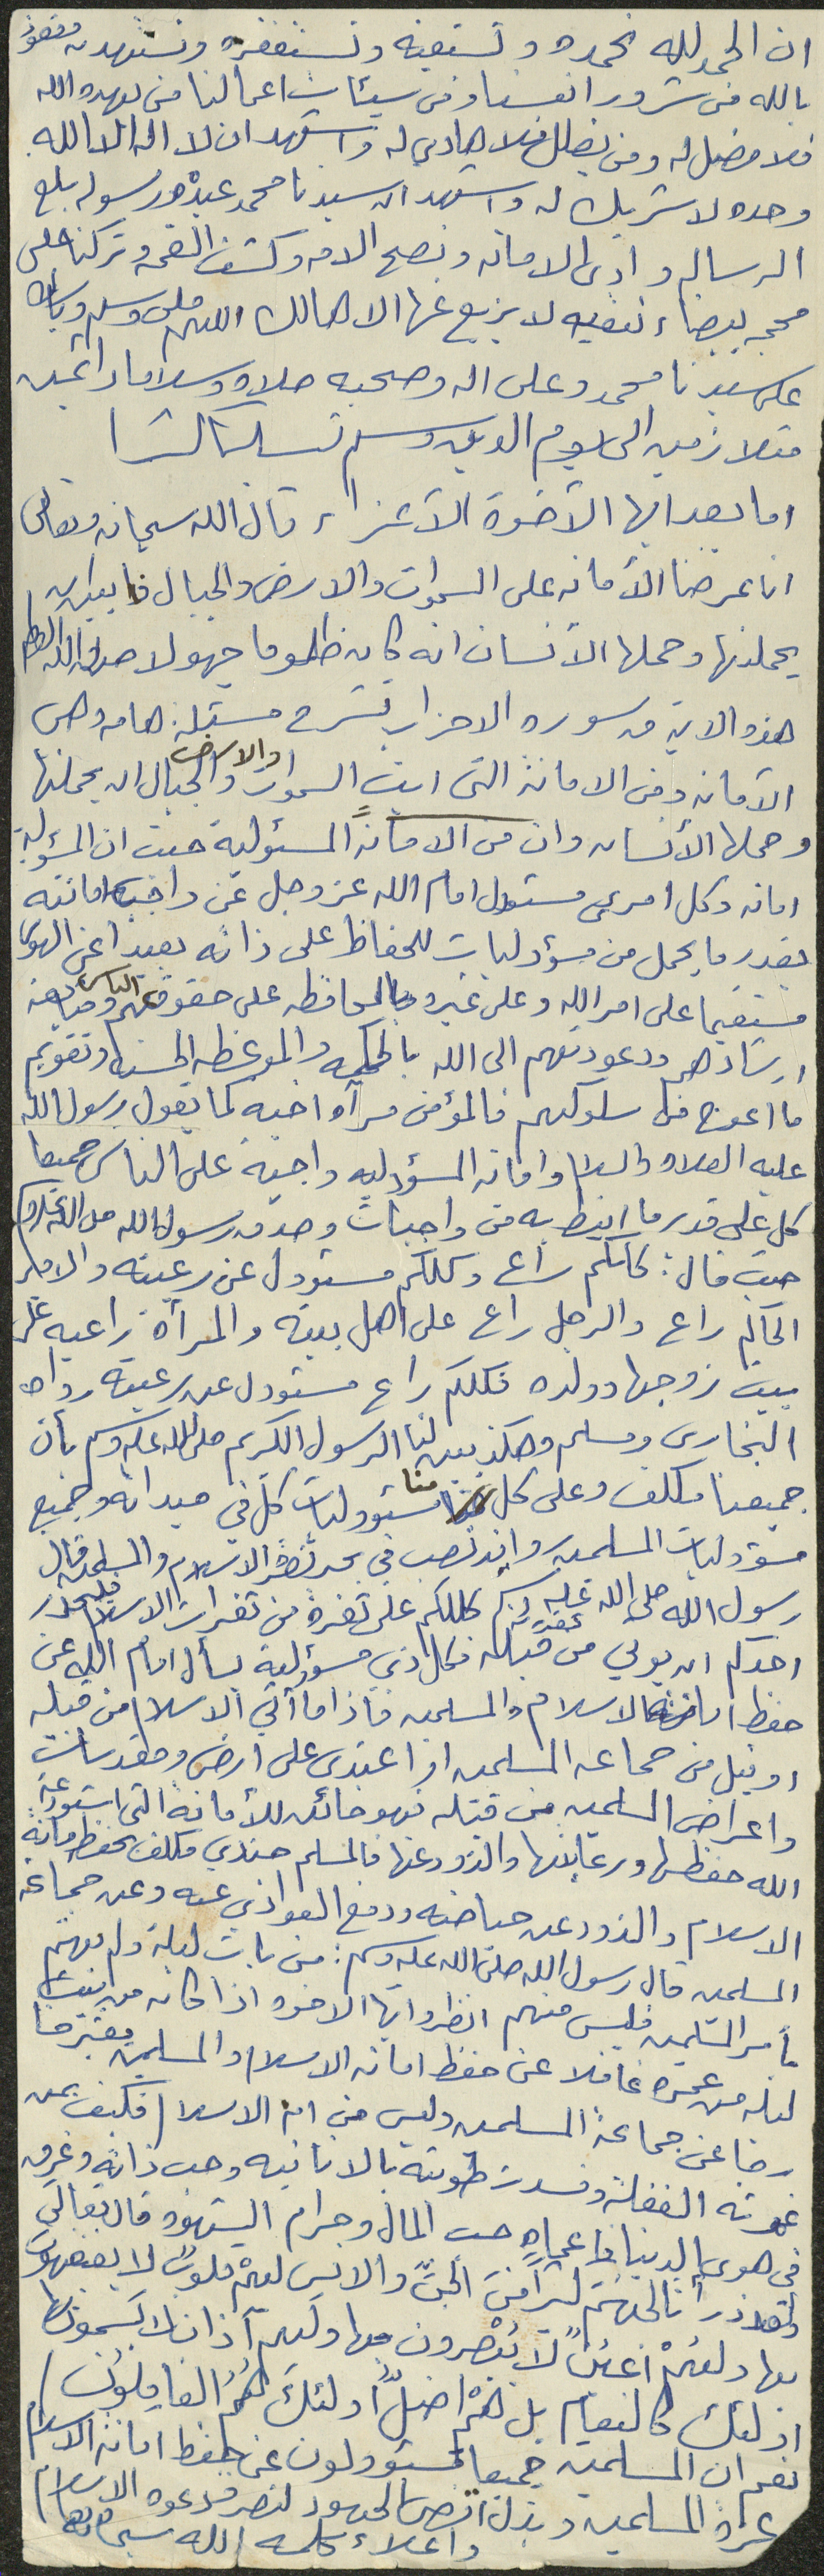 ان الحمد لله نحمده ونستعينه ونستغفره ونستهديه ونعوذ
بالله من شرور انفسنا ومن سيئات اعمالنا من يهده الله
فلا مضل له ومن يضلل فلا هادي له واشهد ان لا اله الا الله
وحده لا شريك له واشهد ان سيدنا محمد عبده ورسوله بلغ
الرساله وادى الامانه ونصح الامه وكشف الغمه وتركنا على
محجه بيضاء نقيه لا يزيع عنها الا هالك اللهم صلي وسلم وبارك
على سيدنا محمد وعلى اله وصحبه صلاه وسلاما دائمين
متلازمين الى يوم الدين وسلم تسليما كثيرا
اما بعد ايها الآخوة الآعزاء، قال الله سبحانه وتعالى
انا عرضنا الأمانه على السموات والارض والجبال فابين ان
يحملنها وحملها الأنسان انه كان ظلوما جهولا صدق الله العظيم
هذه الاية من سوره الاحزاب تشرح مسئله هامه وهي
الآمانه ومن الامانة التي ابت السموات والارض والجبال ان يحملنها
وحملها الأنسان وان من الامانةً المسئولية حيث ان المسؤلية
امانه وكل امرىء مسئول امام الله عز وجل عن واجب امانته
بقدر ما يحمل من مسؤوليات للحفاظ على ذاته بعيدا عن الهوى
مستقيما على امر الله وعلى غيره بالمحافظه على حقوق الناس
ارشادهم ودعوتهم الى الله بالحكمه والموعظه الحسنه وتقويم
ما اعوج من سلوكهم فالمؤمن مرآه اخيه كما يقول رسول الله
عليه الصلاه والسلام وامانه المسؤوليه واجبة على الناس جميعا
كل على قدر ما انيط به من واجبات وصدق رسول الله صلى الله عليه وسلم
حيث قال: كلكم راع وكلكم مسئوول عن رعيته والامام
الحاكم راع والرجل راع على اهل بيته والمرأة راعيه على
بيت زوجها وولده فكلكم راع مسئوول عن رعيته رواه
البخاري ومسلم وهكذ يبين لنا الرسول الكريم صلى الله عليه وسلم بأن
جميعنا مكلف وعلى كل منا مسئووليات كل في ميدانه وجميع
مسؤوليات المسلمين روافد تصب في بحر نصر الاسلام والمسلمين قال
رسول الله صلى الله عليه وسلم كلكم على ثغرة من ثغرات الاسلام فليحذر
احدكم ان يوتي من قبله فكل ذي مسؤولية يسأل امام الله عن
حفظ امانة الاسلام والمسلمين فاذا ما أتي الاسلام من قبله
او نيل من جماعه المسلمين او اعتدى على ارض ومقدسات
واعراض المسلمين من قبله فهو خائن للأمانه التي استودعه
الله حفظها ورعايتها والذود عنها فالمسلم جندي مكلف بحفظ امانة
الاسلام والذود عن حياضه ودفع العوادي عنه وعن جماعة
المسلمين قال رسول الله صلى الله عليه وسلم: من بات ليلة ولم يهتم
بأمر المسلمين فليس منهم انظروا ايها الاخوه اذا كان من يبيت
ليله من عمره غافلا عن حفظ امانه الاسلام والمسلمين يعتبر
خارجا عن جماعة المسلمين وليس من امه الاسلام فكيف بمن
غمرته الغفلة وفسدت طويته بالانانيه وحب ذاته وغرق
في هوى الدنيا فاعماه حب المال وحرام الشهوه قال تعالى
ولقد ذرأنا لجهنم كثيراً من الجن والانس لهم قلوب لا يفقهون
بها ولهم اعين لا يبصرون بها ولهم آذان لا يسمعون بها
اولئك كالنعام بل هم اضل اولئك هم الغافلون
نعم ان المسلمين جميعا لمسئوولون عن حفظ امانة الاسلام
عزة المسلمين وبذل اقصى الجهود لنصر دعوه الاسلام
واعلاء كلمه الله سبحانه